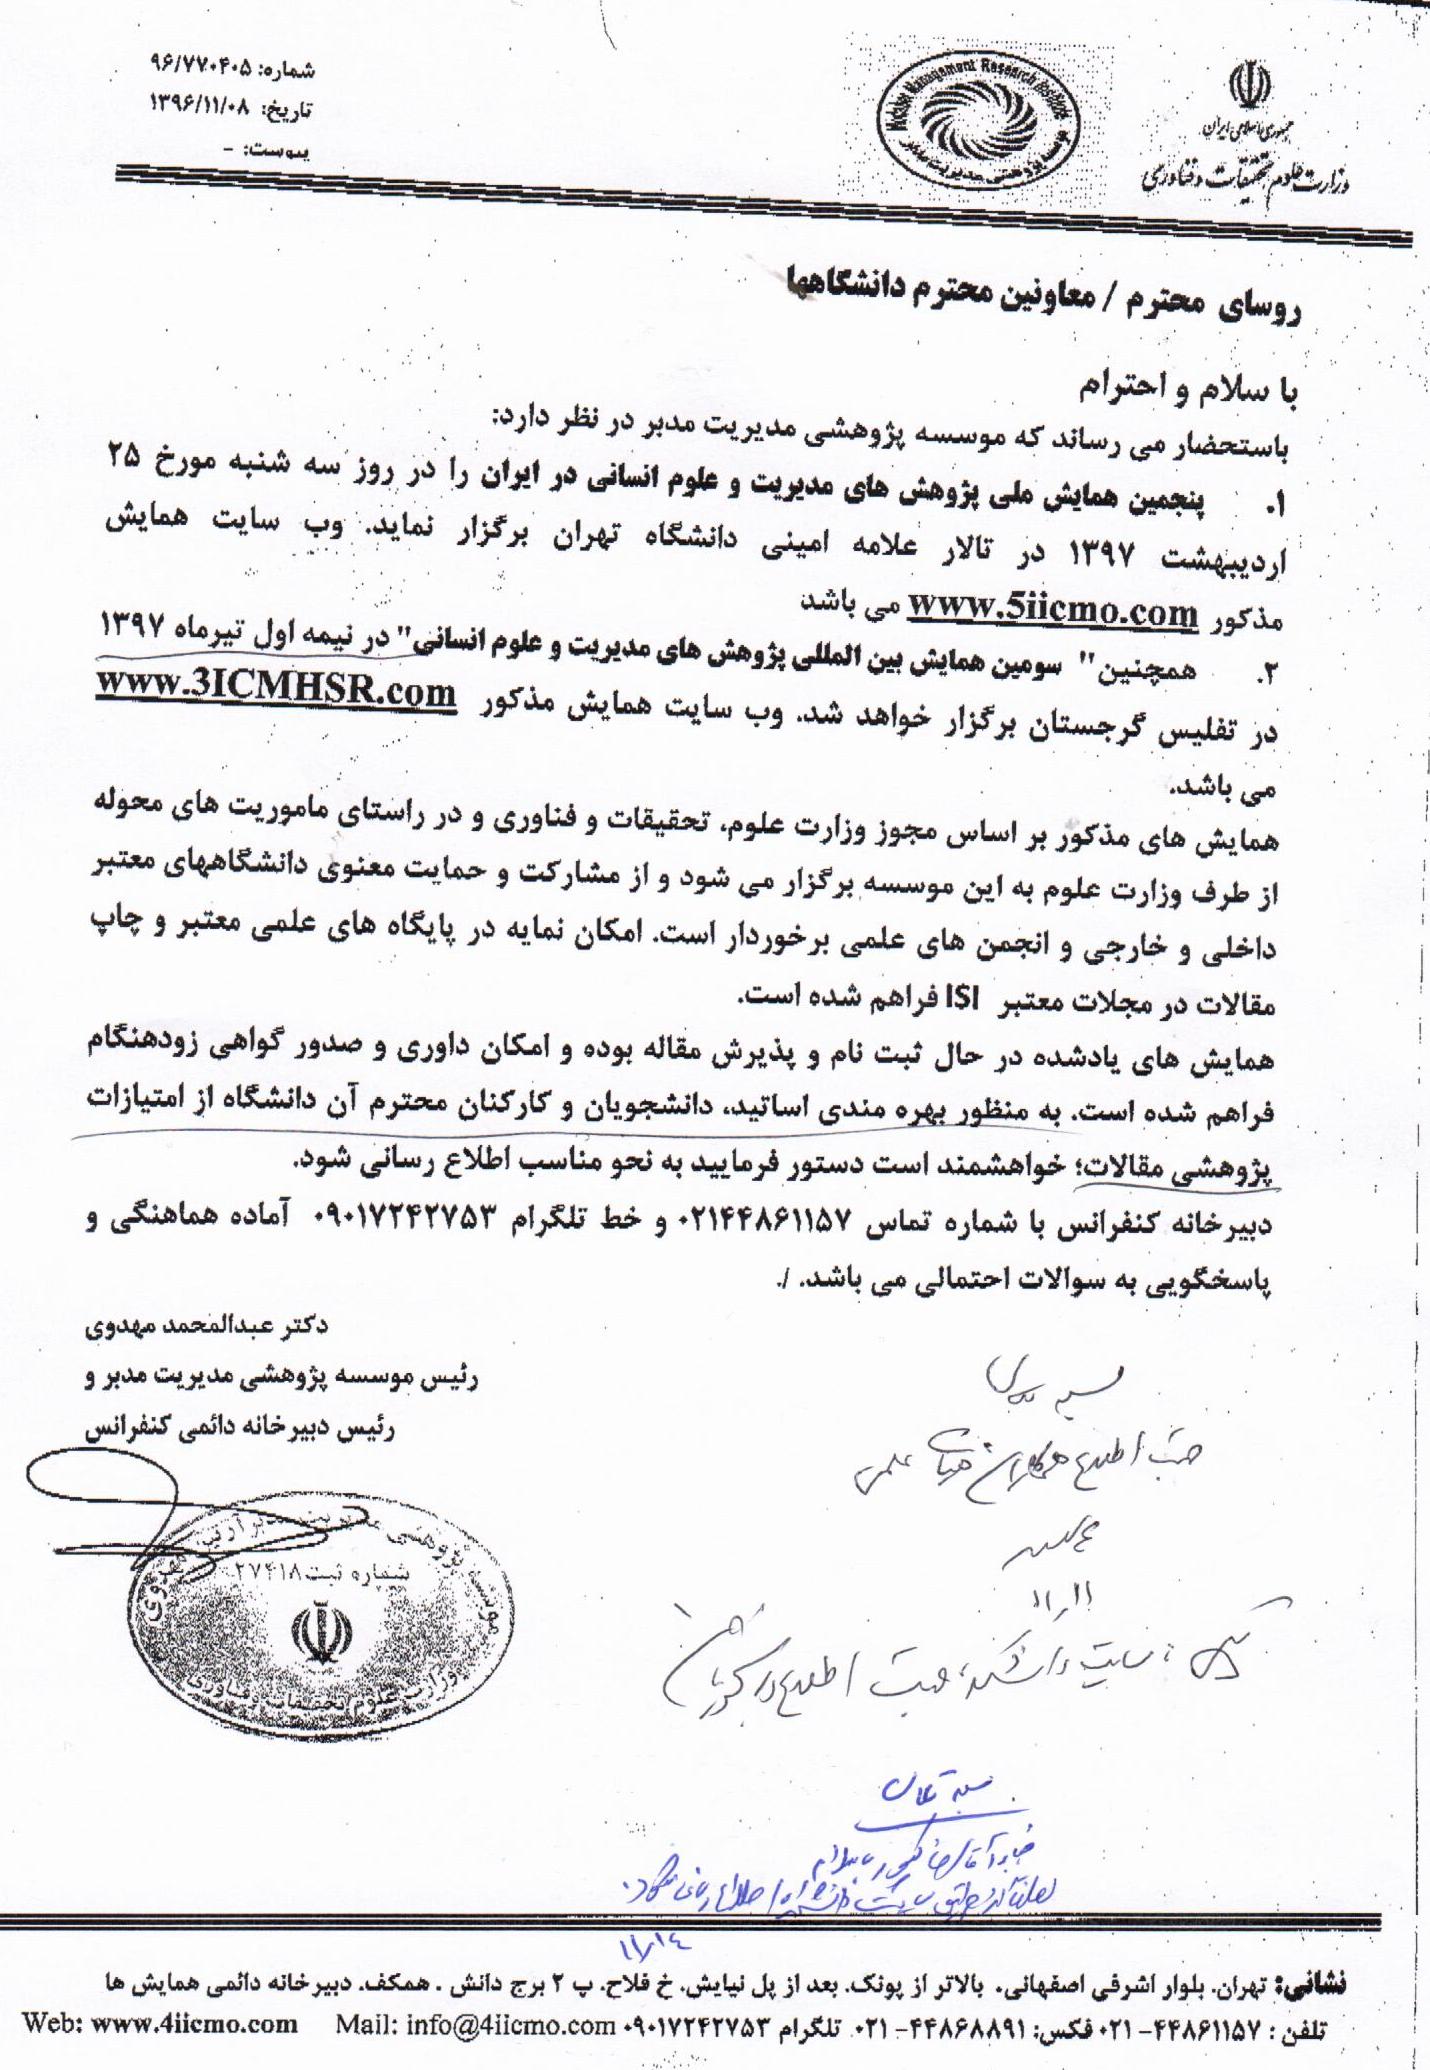 شماره: ۹۶/۷۷۰۴۰۵
تاریخ: ۱۳۹۶/۱۱/۰۸
پیوست: -
Modaber Management Research Institute
موسسه پژوهشی مدیریت مدبر
جمهوری اسلامی ایران
وزارت علوم تحقیقات و فناوری
روسای محترم / معاونین محترم دانشگاهها
با سلام و احترام
باستحضار می رساند که موسسه پژوهشی مدیریت مدبر در نظر دارد:
۱. پنجمین همایش ملی پژوهش های مدیریت و علوم انسانی در ایران را در روز سه شنبه مورخ ۲۵
اردیبهشت ۱۳۹۷ در تالار علامه امینی دانشگاه تهران برگزار نماید. وب سایت همایش
مذکور www.5iicmo.com می باشد
۲. همچنین" سومین همایش بین المللی پژوهش های مدیریت و علوم انسانی" در نیمه اول تیرماه ۱۳۹۷
در تفلیس گرجستان برگزار خواهد شد. وب سایت همایش مذکور www.3ICMHSR.com
می باشد.
همایش های مذکور بر اساس مجوز وزارت علوم، تحقیقات و فناوری و در راستای ماموریت های محوله
از طرف وزارت علوم به این موسسه برگزار می شود و از مشارکت و حمایت معنوی دانشگاههای معتبر
داخلی و خارجی و انجمن های علمی برخوردار است. امکان نمایه در پایگاه های علمی معتبر و چاپ
مقالات در مجلات معتبر ISI فراهم شده است.
همایش های یادشده در حال ثبت نام و پذیرش مقاله بوده و امکان داوری و صدور گواهی زودهنگام
فراهم شده است. به منظور بهره مندی اساتید، دانشجویان و کارکنان محترم آن دانشگاه از امتیازات
پژوهشی مقالات؛ خواهشمند است دستور فرمایید به نحو مناسب اطلاع رسانی شود.
دبیرخانه کنفرانس با شماره تماس ۰۲۱۴۴۸۶۱۱۵۷ و خط تلگرام ۰۹۰۱۷۲۴۲۷۵۳ آماده هماهنگی و
پاسخگویی به سوالات احتمالی می باشد. ./
دکتر عبدالمحمد مهدوی
رئیس موسسه پژوهشی مدیریت مدبر و
رئیس دبیرخانه دائمی کنفرانس
موسسه پژوهشی مدیریت مدبر
شماره ثبت ۲۷۴۱۸
وزارت علوم تحقیقات و فناوری
جهت اطلاع همکاران هیات علمی
۱۱/۱۱
سایت دانشکده جهت اطلاع
بسمه تعالی
۱۱/۱۴
نشانی: تهران. بلوار اشرفی اصفهانی. بالاتر از پونک. بعد از پل نیایش. خ فلاح. پ ۲ برج دانش . همکف. دبیرخانه دائمی همایش ها
تلفن : ۴۴۸۶۱۱۵۷- ۰۲۱ فکس: ۴۴۸۶۸۸۹۱- ۰۲۱. تلگرام ۰۹۰۱۷۲۴۲۷۵۳ Mail: info@4iicmo.com Web: www.4iicmo.com